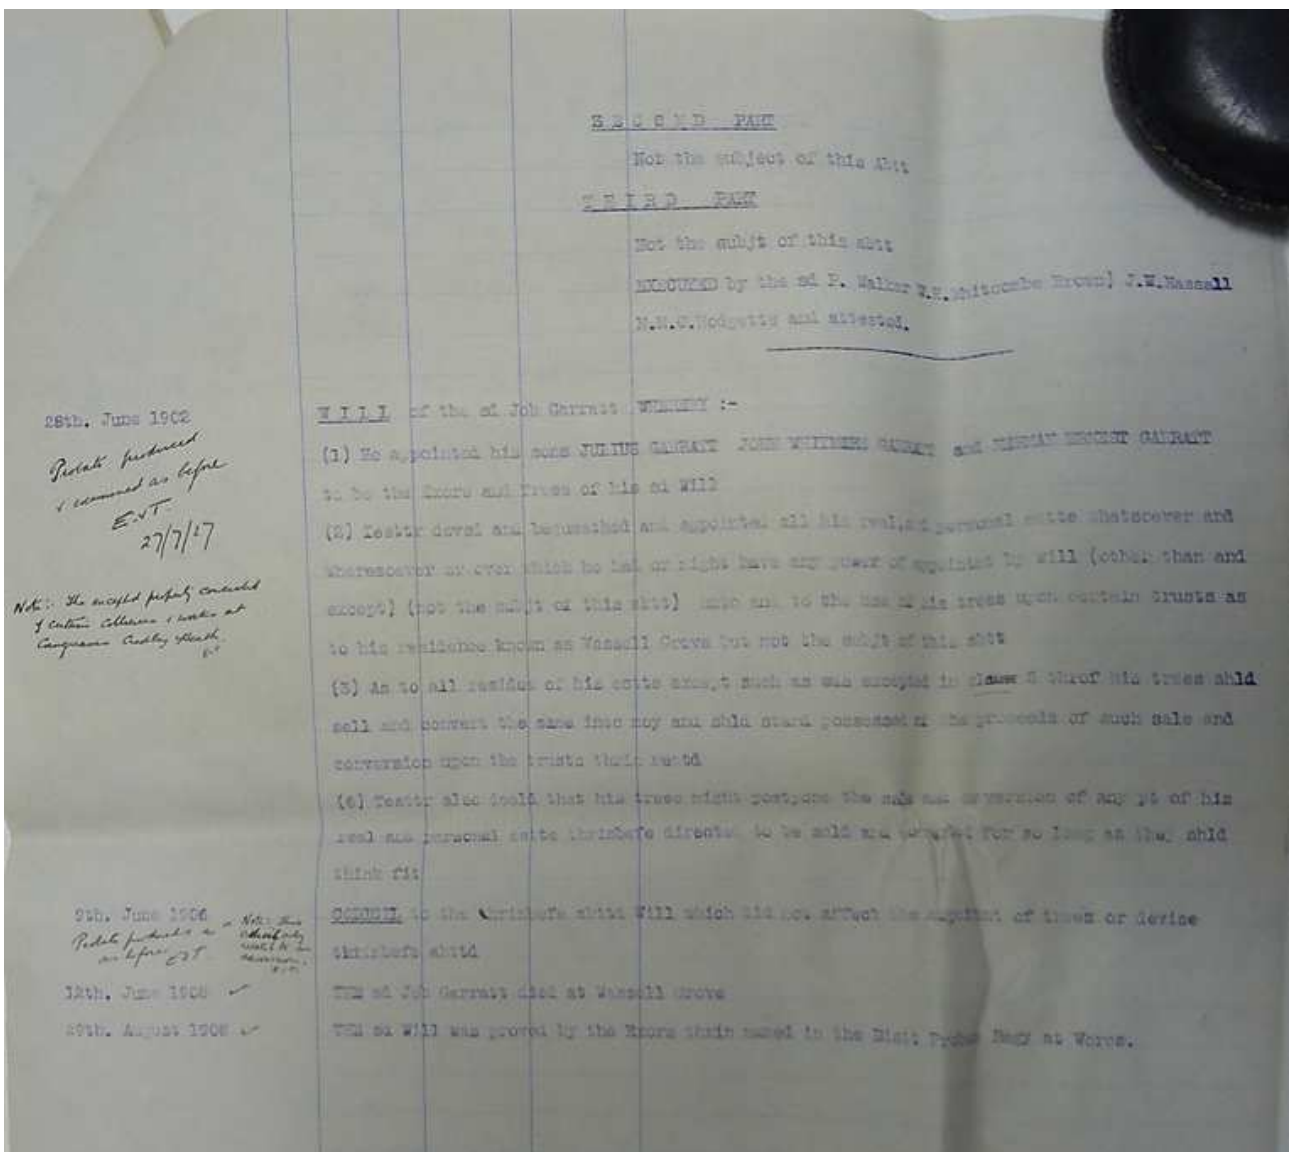 SECOND PART
Not the subject of this Abtt
THIRD PART
Not the subjt of this abtt
EXECUTED by the sd P. Walker W.H.Whitcombe Brown) J.W.Bassall
N.M.C.Hodgetts and attested.
28th. June 1902
WILL of the sd Job Garratt WHEREBY :-
Probate produced
& examined as before
E.V.T.
27/7/17
(1) He appointed his sons JULIUS GARRATT JOHN WHITMORE GARRATT and ERNEST GARRATT
to be the Exors and Trees of his sd Will
(2) Testtr devsd and bequeathed and appointed all his real and personal estte whatsoever and
wheresoever or over which he had or might have any power of appointmt by will (other than and
except) (not the subjt of this abtt) unto and to the use of his trees upon certain trusts as
to his residence known as Wassell Grove but not the subjt of this abtt
Note: The excepted property consisted
of certain collieries & works at
Cradley Heath.
(3) As to all residue of his estte except such as was excepted in clause 2 throf his trees shld
sell and convert the same into moy and shld stand possessed of the proceeds of such sale and
conversion upon the trusts thrin
(6) Testtr also decld that his trees might postpone the sale and conversion of any pt of his
real and personal estte thrinbefe directed to be sold and converted for so long as they shld
think fit
9th. June 1906
Probate produced
as before EVT.
CODICIL to the thrinbefe abttd Will which did not affect the appintmt of trees or devise
thrinbefe abttd
12th. June 1908
THE sd Job Garratt died at Wassell Grove
29th. August 1908
THE sd Will was proved by the Exors thrin named in the Distt Probte Regy at Worcs.